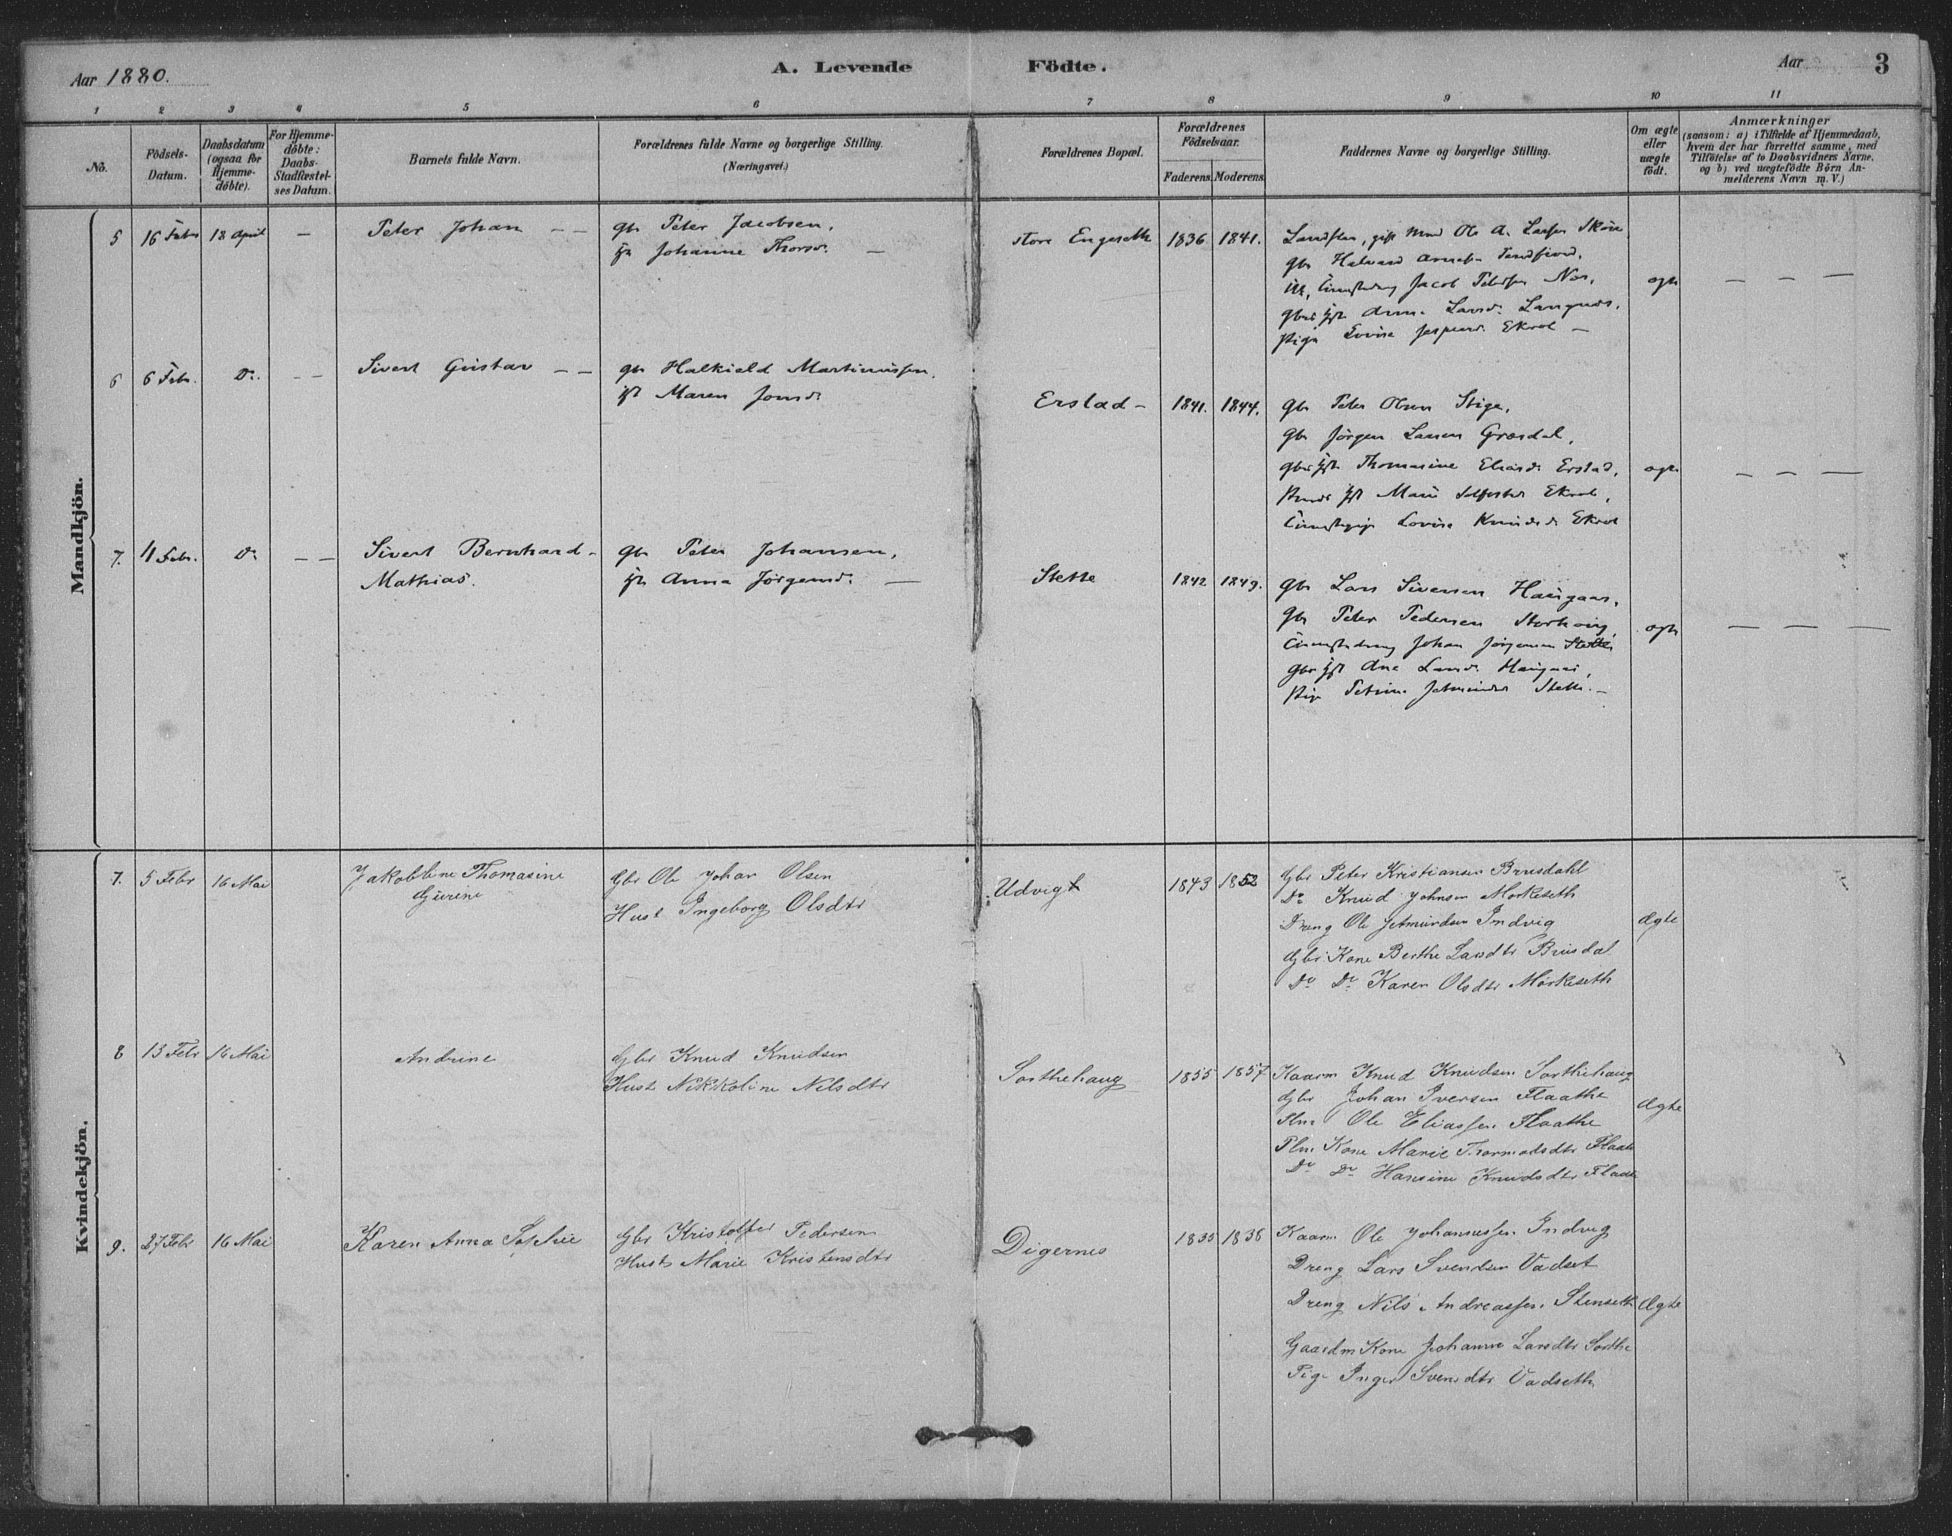 Aar 1880.
A. Levende Födte.
Aar 3
1 2 3 4 5 6 7 8 9 10 11
No.
Födsels-Datum.
Daabsdatum (ogsaa for Hjemme-döbte).
For Hjemme-döbte: Daabs-Stadfæstel-ses Datum.
Barnets fulde Navn.
Forældrenes fulde Navne og borgerlige Stilling.
(Næringsvei.)
Forældrenes Bopæl.
Forældrenes Födselsaar.
Faderens. Moderens.
Faddernes Navne og borgerlige Stilling.
Om ægte eller uægte födt.
Anmærkninger
(saasom: a) i Tilfælde af Hjemmedaab,
hvem der har forrettet samme, med
Tilföielse af to Daabsvidners Navne,
og b) ved uægtefödte Börn An-
melderens Navn m. V.)
Mandkjön.
5 16 Febr 18 April — Peter Johan — —
Gbr Peter Jacobsen,
Johanine Thorsd. —
Store Engeseth 1836 1841.
Ole A. Larsen
Gbr Halvard
Jacob Petersen
Anna Larsd. Langnes,
Pige Lovise Ekrol —
ægte — — —
6 6 Febr. Do. — — Sivert Gustav — —
Gbr Halkield Martinussen,
Maren Jonsd.
Erstad — 1841. 1844.
Gbr Peter Olsen Stige,
Gbr Jörgen Larsen Græsdal,
Thomasine Erstad,
Marie Ekrol,
Lovise Knudsd. Ekrol
ægte — — —
7. 11 Febr. Do — — Sivert Bernhard —
Mathias.
Gbr Peter Johansen,
Anna Jörgensd. —
Stette 1842 1849.
Gbr Lars Siversen Haugaas,
Gbr Peter Pedersen
Johan Jörgensen Stette
Ane Larsd. Haugaas,
Pige Petrine Stette. —
ægte — — —
Kvindekjön.
7. 5 Febr 16 Mai Jakobbine Thomasine
Gurine
Gbr Ole Johan Olsen
Hust Ingeborg Olsdtr
Udvigt 1843 1852
Gbr Peter Kristiansen Brusdahl
Do Knud Johnsen Morkeseth
Dreng Ole Amundsen Indvig
Gbr Kone Berthe Larsdtr Brusdal
Do Do Karen Olsdtr Mörkeseth
Ægte
8 13 Febr 16 Mai Andrine
Gbr Knud Knudsen
Hust Nikkoline Nilsdtr
Sorthehaug 1855 1857
Kaarm Knud Knudsen Sorthehaug
Gbr Johan Iversen Flaathe
Ole Eliassen Flaathe
Plm Kone Marie Thormodsdtr
Do Do Hansine Knudsdtr
Ægte
9. 27 Febr 16 Mai Karen Anna Sophie
Gbr Kristoffer Pedersen
Hust Marie Kristensdtr
Digernes 1835 1838
Kaarm Ole Johannessen Indvig
Dreng Lars Svendsen Vadset
Dreng Nils Andreassen Stenseth
Gaardm Kone Johanne Larsdtr Sorthe
Pige Inger Svendtr Vadseth
Ægte